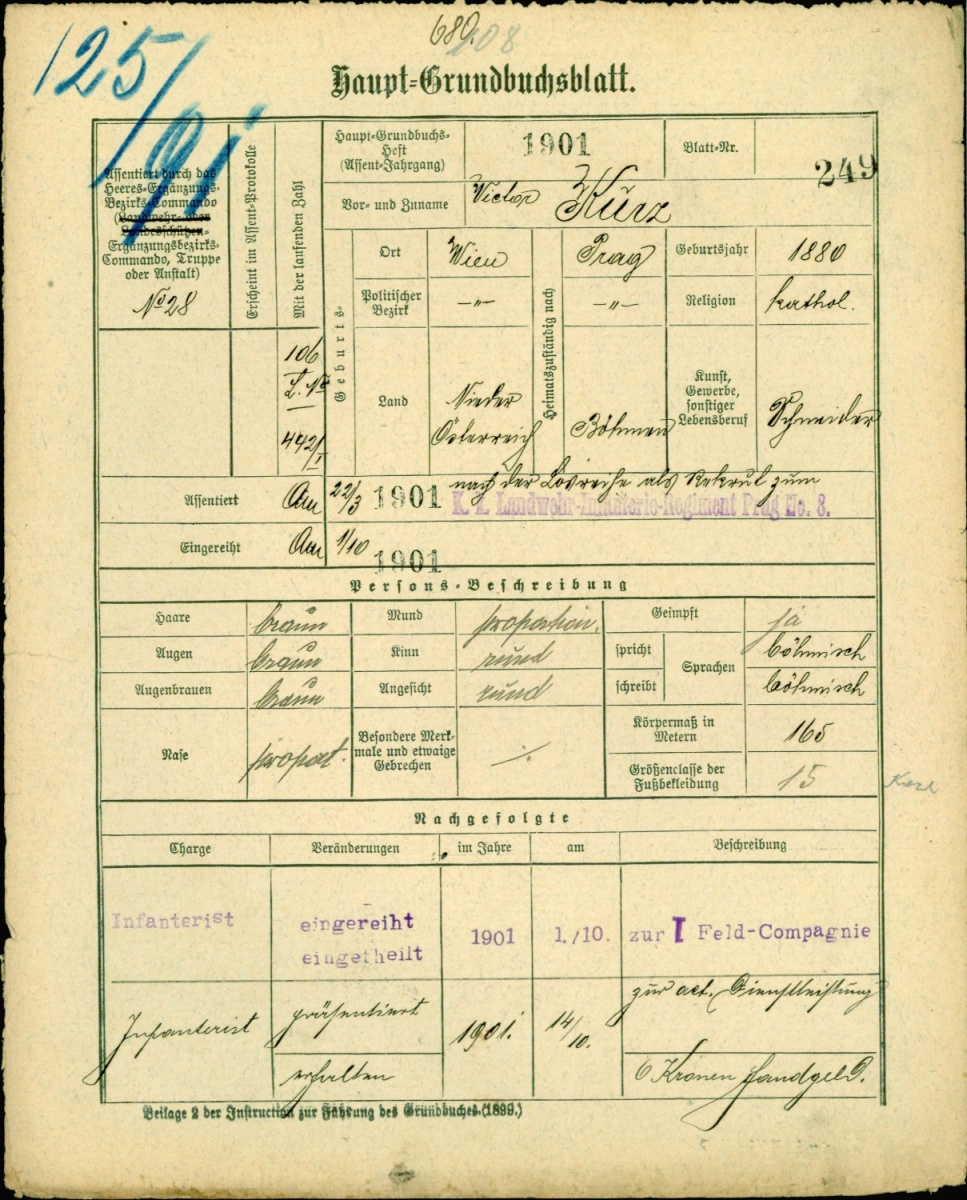 125/
689.
108
Haupt-Grundbuchsblatt.
Assentiert durch das
Heeres-Ergänzungs-
Bezirks-Commando
(Landwehr- oder
Landesschützen-
Ergänzungsbezirks-
Commando, Truppe
oder Anstalt)
No 28
Erscheint im Assent-Protokolle
Mit der laufenden Zahl
106
L. No
442/I
Haupt-Grundbuchs-
Heft
(Assent-Jahrgang)
1901
Blatt-Nr.
249
Vor- und Zuname
Victor Kurz
Geburts-
Ort
Wien
Heimatszuständig nach
Prag
Geburtsjahr
1880
Politischer
Bezirk
—"—
—"—
Religion
kathol.
Land
Nieder
Österreich
Böhmen
Kunst,
Gewerbe,
sonstiger
Lebensberuf
Schneider
Assentiert
Am 22/3 1901 nach der Losreihe als Rekrut zum
K. k. Landwehr-Infanterie-Regiment Prag No. 8.
Eingereiht
Am 1/10 1901
Persons-Beschreibung
Haare braun Mund proportion. Geimpft ja
Augen braun Kinn rund spricht Sprachen böhmisch
Augenbrauen braun Angesicht rund schreibt böhmisch
Nase proport.
Besondere Merk-
male und etwaige
Gebrechen
./.
Körpermaß in
Metern
165
Größenclasse der
Fußbekleidung
15
Nachgefolgte
Charge Veränderungen im Jahre am Beschreibung
Infanterist eingereiht
eingetheilt 1901 1./10. zur I Feld-Compagnie
Infanterist präsentiert 1901. 14/10. zur act. Dienstleistung
erhalten 6 Kronen Handgeld.
Beilage 2 der Instruction zur Führung des Grundbuches. (1899.)